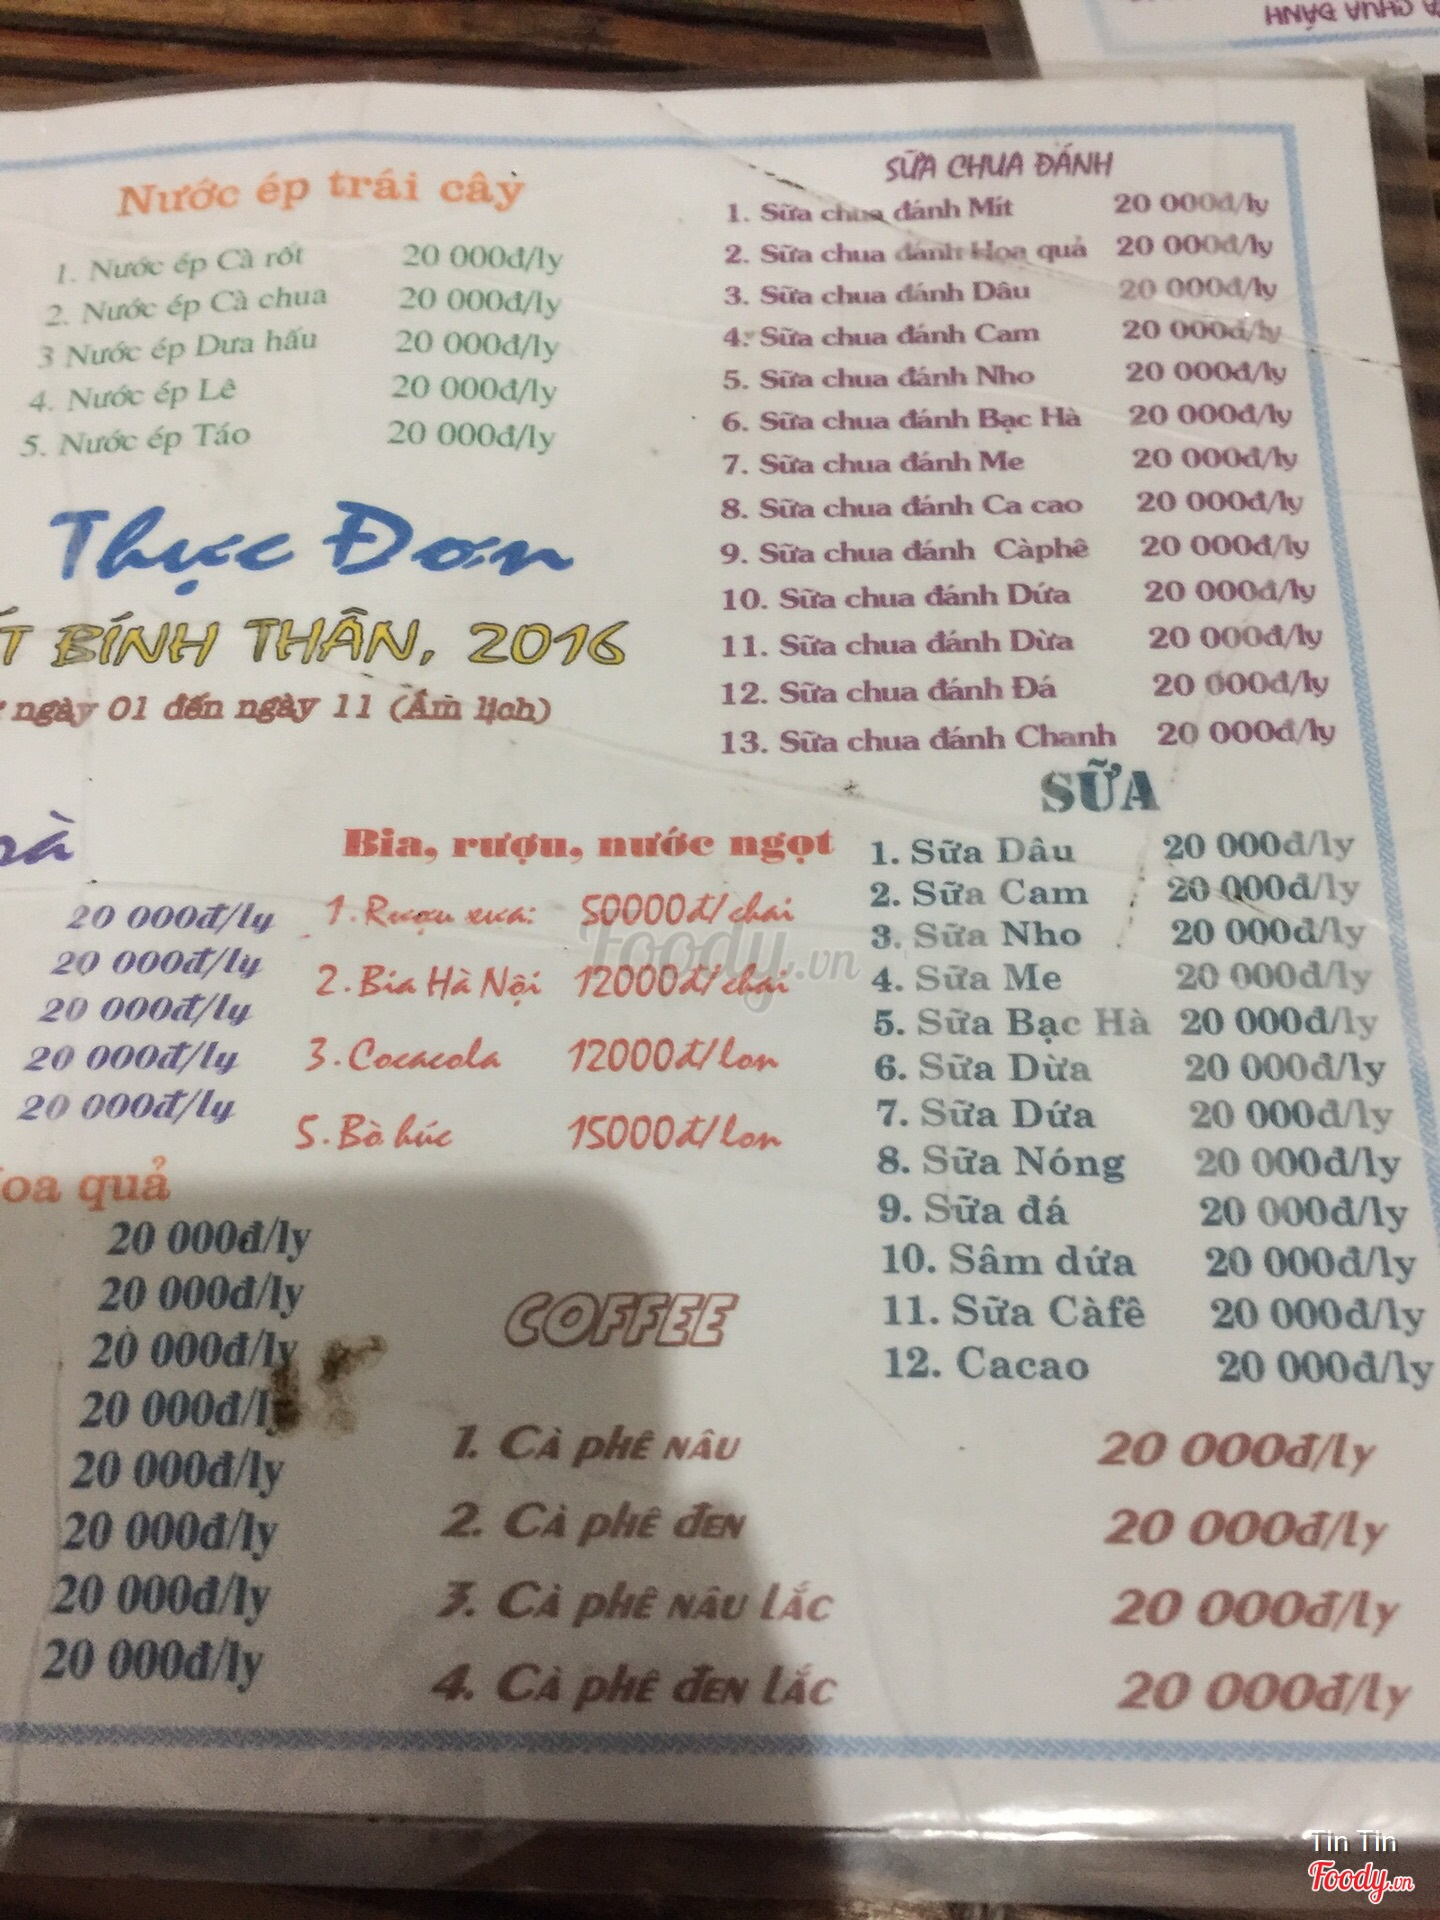 SỮA CHUA ĐÁNH
Nước ép trái cây
1. Nước ép Cà rốt 20 000đ/ly
2. Nước ép Cà chua 20 000đ/ly
3 Nước ép Dưa hấu 20 000đ/ly
4. Nước ép Lê 20 000đ/ly
5. Nước ép Táo 20 000đ/ly
Thực Đơn
BÍNH THÂN, 2016
ngày 01 đến ngày 11 (Âm lịch)
20 000đ/ly
20 000đ/ly
20 000đ/ly
20 000đ/ly
20 000đ/ly
quả
20 000đ/ly
20 000đ/ly
20 000đ/ly
20 000đ/ly
20 000đ/ly
20 000đ/ly
20 000đ/ly
20 000đ/ly
Bia, rượu, nước ngọt
1. Rượu xưa: 50000đ/chai
2. Bia Hà Nội 12000đ/chai
3. Cocacola 12000đ/lon
5. Bò húc 15000đ/lon
SỮA CHUA ĐÁNH
1. Sữa chua đánh Mít 20 000đ/ly
2. Sữa chua đánh Hoa quả 20 000đ/ly
3. Sữa chua đánh Dâu 20 000đ/ly
4. Sữa chua đánh Cam 20 000đ/ly
5. Sữa chua đánh Nho 20 000đ/ly
6. Sữa chua đánh Bạc Hà 20 000đ/ly
7. Sữa chua đánh Me 20 000đ/ly
8. Sữa chua đánh Ca cao 20 000đ/ly
9. Sữa chua đánh Càphê 20 000đ/ly
10. Sữa chua đánh Dứa 20 000đ/ly
11. Sữa chua đánh Dừa 20 000đ/ly
12. Sữa chua đánh Đá 20 000đ/ly
13. Sữa chua đánh Chanh 20 000đ/ly
SỮA
1. Sữa Dâu 20 000đ/ly
2. Sữa Cam 20 000đ/ly
3. Sữa Nho 20 000đ/ly
4. Sữa Me 20 000đ/ly
5. Sữa Bạc Hà 20 000đ/ly
6. Sữa Dừa 20 000đ/ly
7. Sữa Dứa 20 000đ/ly
8. Sữa Nóng 20 000đ/ly
9. Sữa đá 20 000đ/ly
10. Sâm dứa 20 000đ/ly
11. Sữa Càfê 20 000đ/ly
12. Cacao 20 000đ/ly
COFFEE
1. Cà phê nâu 20 000đ/ly
2. Cà phê đen 20 000đ/ly
3. Cà phê nâu lắc 20 000đ/ly
4. Cà phê đen lắc 20 000đ/ly
Foody.vn
Tin Tin
Foody.vn